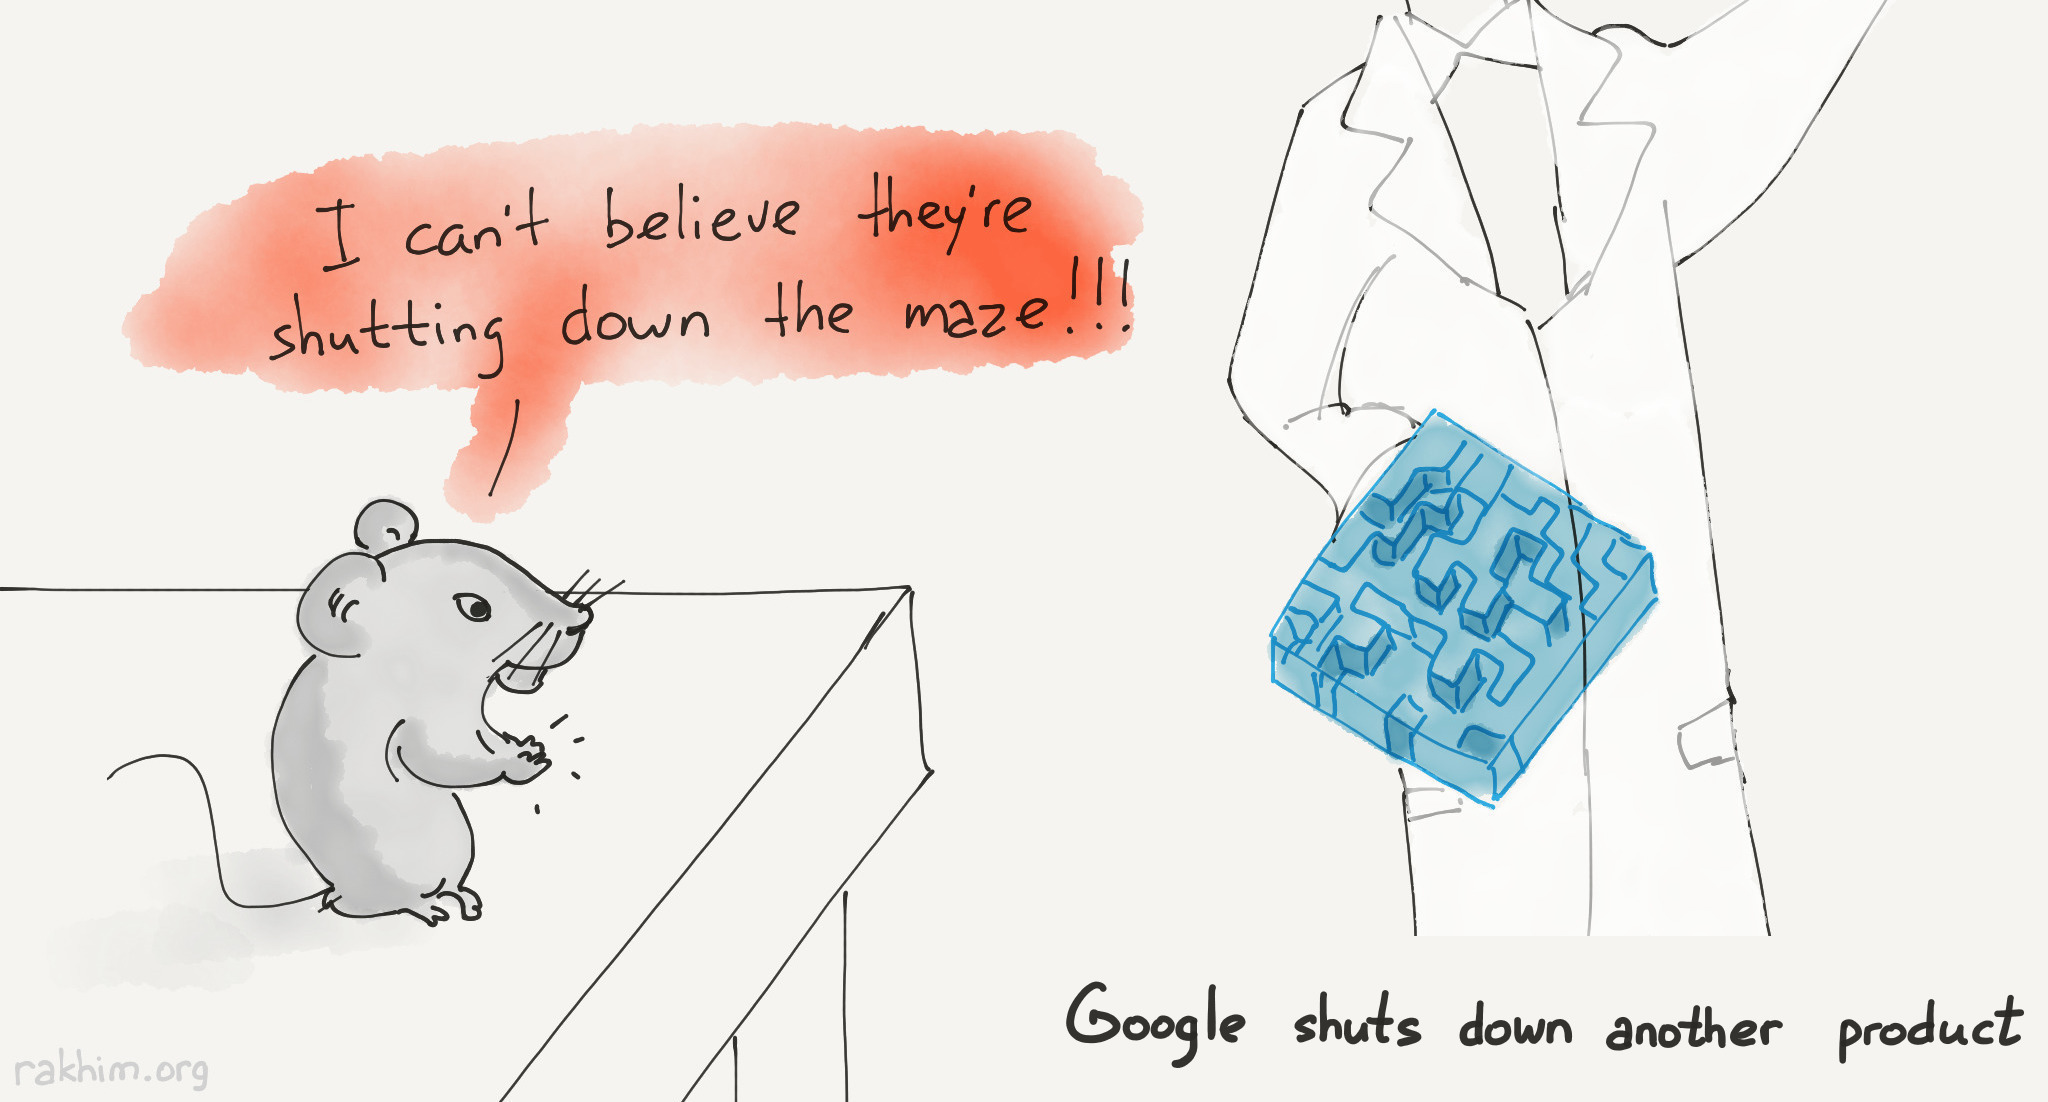 I can't believe they're
shutting down the maze!!!
Google shuts down another product
rakhim.org